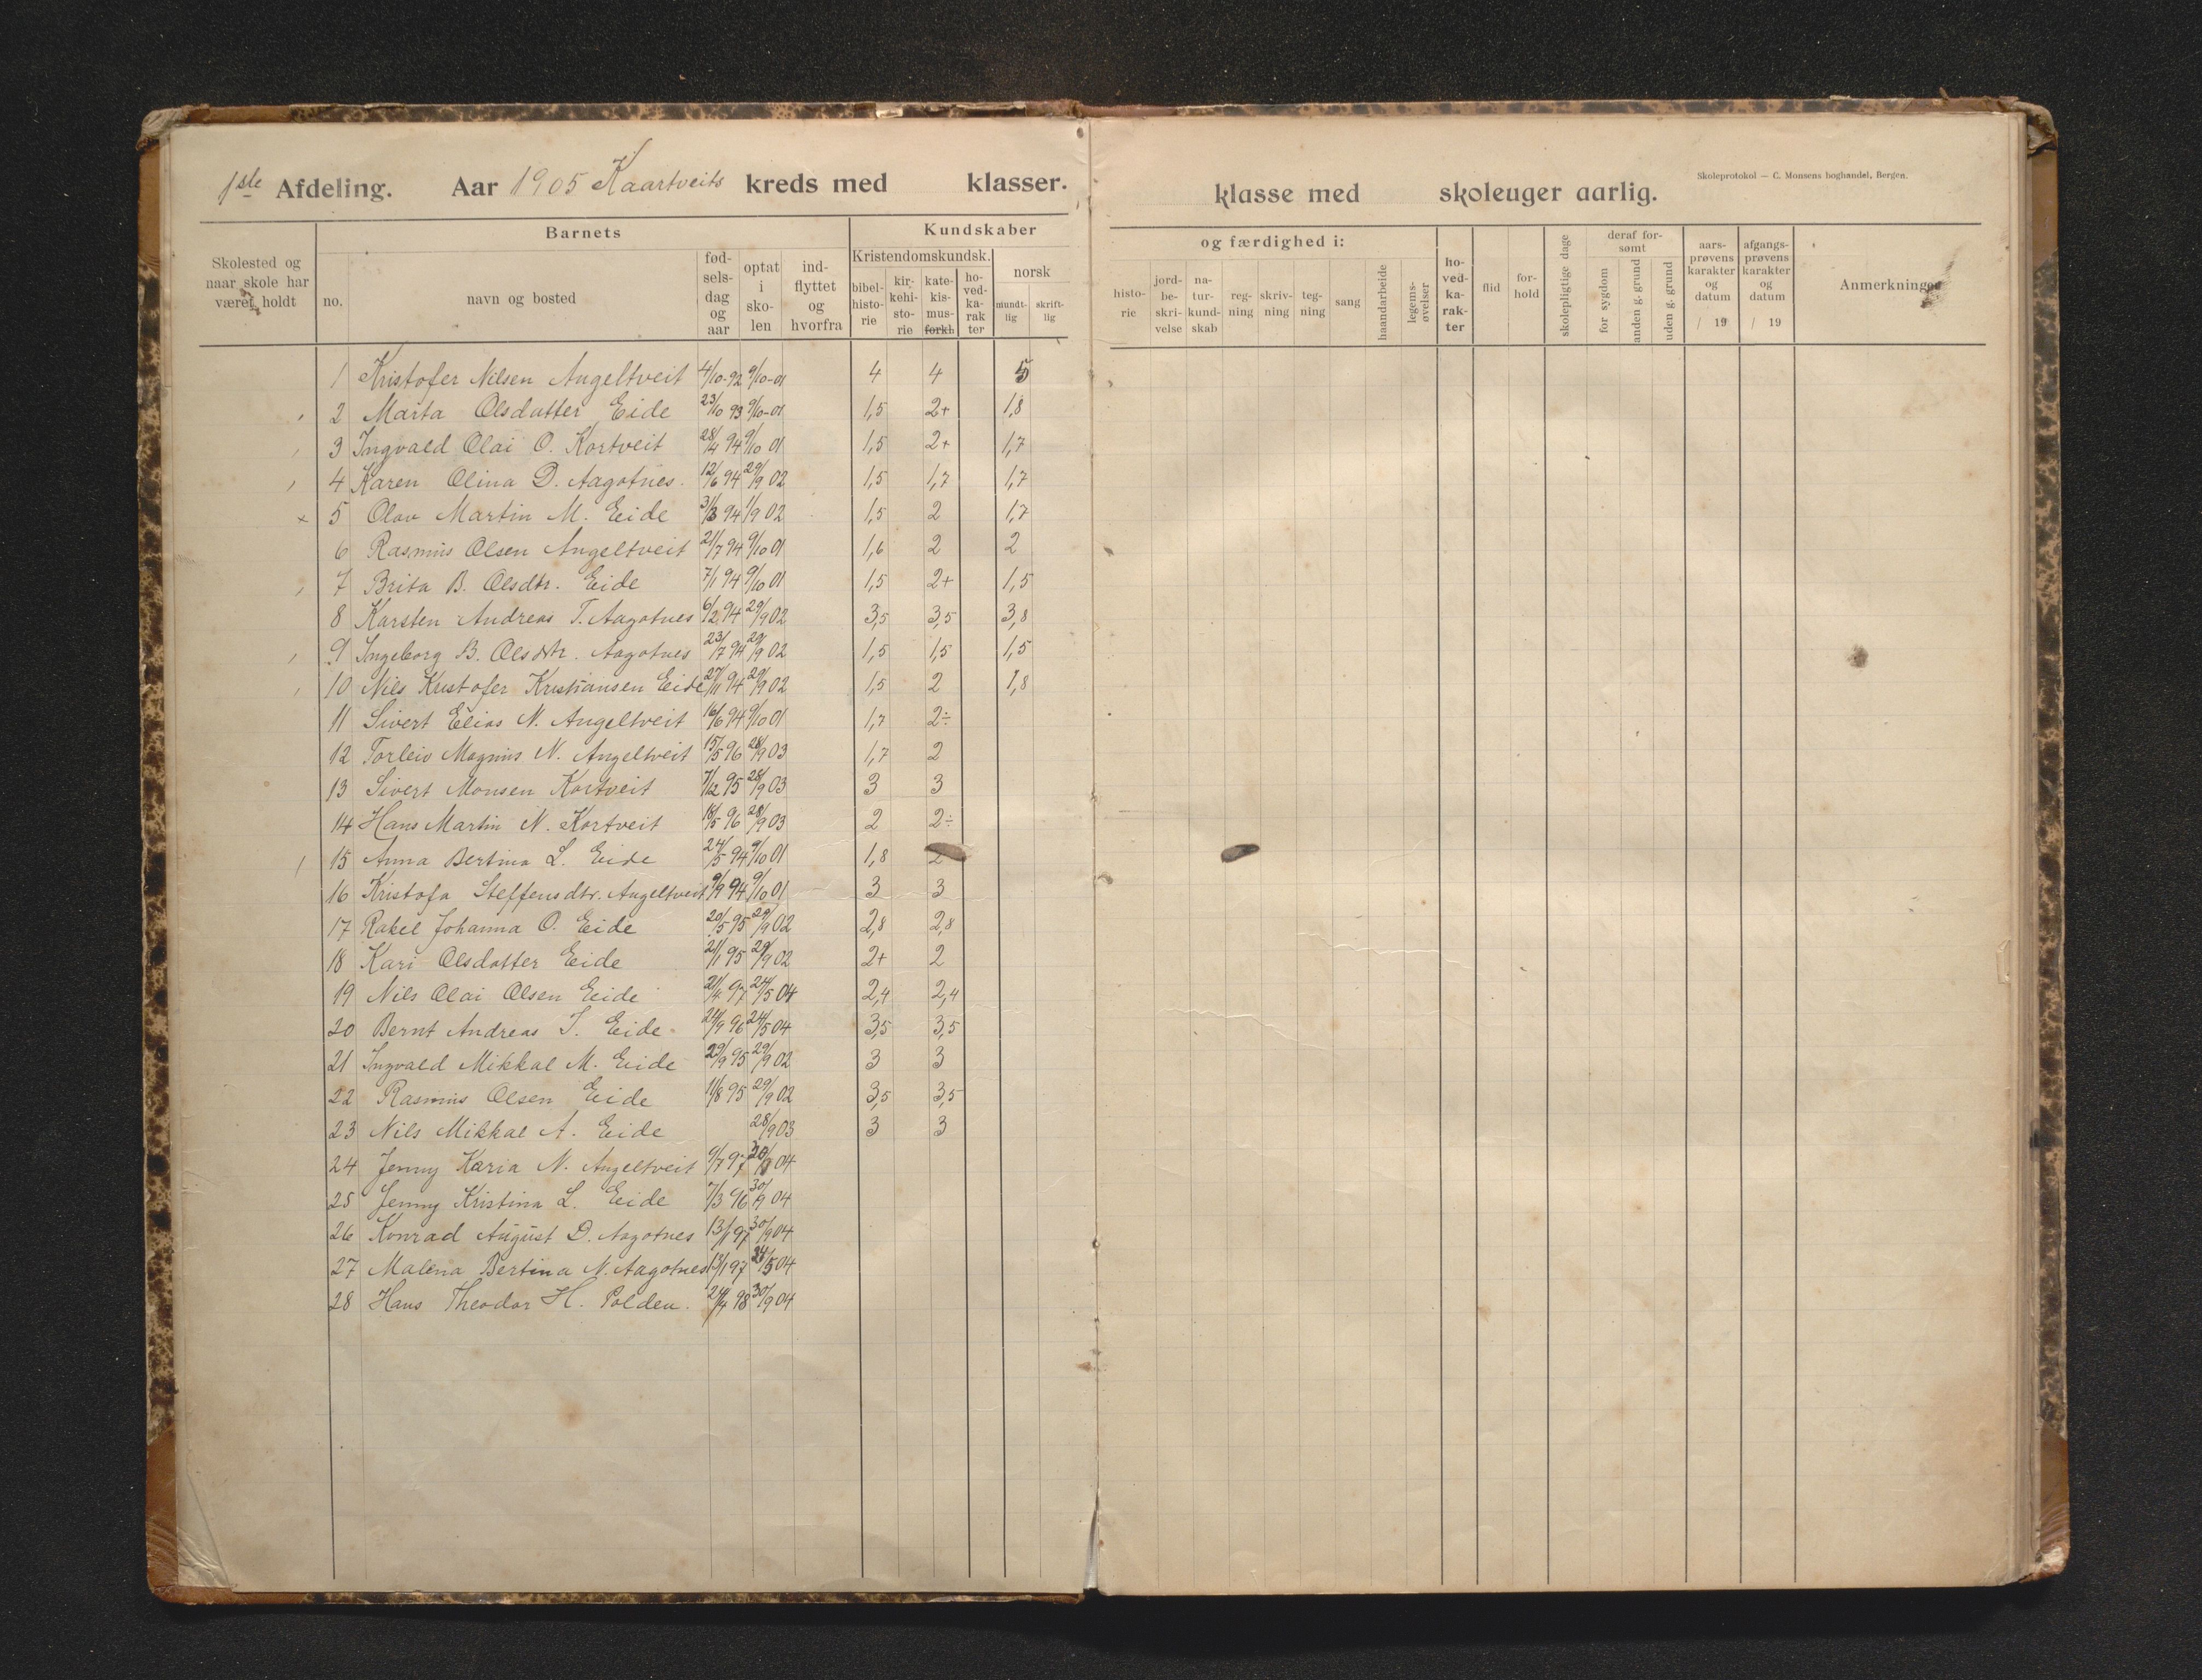 1ste Afdeling. Aar 1905 Kaartveits kreds med klasser.
Skolested og naar skole har været holdt
Barnets
no.
navn og bosted
fød-sels-dag og aar
optat i sko-len
ind-flyttet og hvorfra
Kundskaber
Kristendomskundsk.
bibel-histo-rie
kir-kehi-sto-rie
kate-kis-mus-forkl.
ho-ved-ka-rak ter
norsk
mundt-lig
skrift-lig
1 Kristofer Nilsen Angeltveit 4/10-92 9/10-01 4 4 5
2 Marta Olsdatter Eide 23/10 93 9/10-01 1,5 2+ 1,8
3 Ingvald Olai O. Kortveit 28/4 94 9/10 01 1,5 2+ 1,7
4 Karen Olina D. Aagotnes. 12/6 94 29/9 02 1,5 1,7 1,7
5 Olav Martin M. Eide 31/3 94 1/9 02 1,5 2 1,7
6 Rasmus Olsen Angeltveit 21/7 94 9/10 01 1,6 2 2
7 Brita B. Olsdtr. Eide 7/1 94 9/10 01 1,5 2+ 1,5
8 Karsten Andreas T. Aagotnes 6/2 94 29/9 02 3,5 3,5 3,8
9 Ingeborg B. Olsdtr. Aagotnes 23/7 94 29/9 02 1,5 1,5 1,5
10 Nils Kristofer Kristiansen Eide 27/11 94 29/9 02 1,5 2 1,8
11 Sivert Elias N. Angeltveit 16/6 94 9/10 01 1,7 2÷
12 Torleiv Magnus N. Angeltveit 15/5 96 28/9 03 1,7 2
13 Sivert Monsen Kortveit 7/12 95 28/9 03 3 3
14 Hans Martin N. Kortveit 18/5 96 28/9 03 2 2÷
15 Anna Bertina L. Eide 24/5 94 9/10 01 1,8 2
16 Kristofa Steffensdtr. Angeltveit 9/9 94 9/10 01 3 3
17 Rakel Johanna O. Eide 20/5 95 29/9 02 2,8 2,8
18 Kari Olsdatter Eide 21/1 95 29/9 02 2+ 2
19 Nils Olai Olsen Eide 21/4 97 24/5 04 2,4 2,4
20 Bernt Andreas I. Eide 24/9 96 24/5 04 3,5 3,5
21 Ingvald Mikkal M. Eide 29/9 95 29/9 02 3 3
22 Rasmus Olsen Eide 11/8 95 29/9 02 3,5 3,5
23 Nils Mikkal A. Eide 28/9 03 3 3
24 Jenny Karia N. Angeltveit 9/7 97 30/9 04
25 Jenny Kristina L. Eide 7/3 96 30/9 04
26 Konrad August D. Aagotnes 13/1 97 30/9 04
27 Malena Bertina N. Aagotnes 13/1 97 24/5 04
28 Hans Theodor H. Polden. 24/4 98 30/9 04
klasse med skoleuger aarlig.
Skoleprotokol — C. Monsens boghandel, Bergen.
og færdighed i:
histo-rie
jord-be-skri-velse
na-tur-kund-skab
reg-ning
skriv-ning
teg-ning
sang
haandarbeide
legems-øvelser
ho-ved-ka-rak-ter
flid
for-hold
skolepligtige dage
deraf for-sømt
for sygdom
anden g. grund
uden g. grund
aars-prøvens karakter og datum / 19
afgangs-prøvens karakter og datum / 19
Anmerkninger